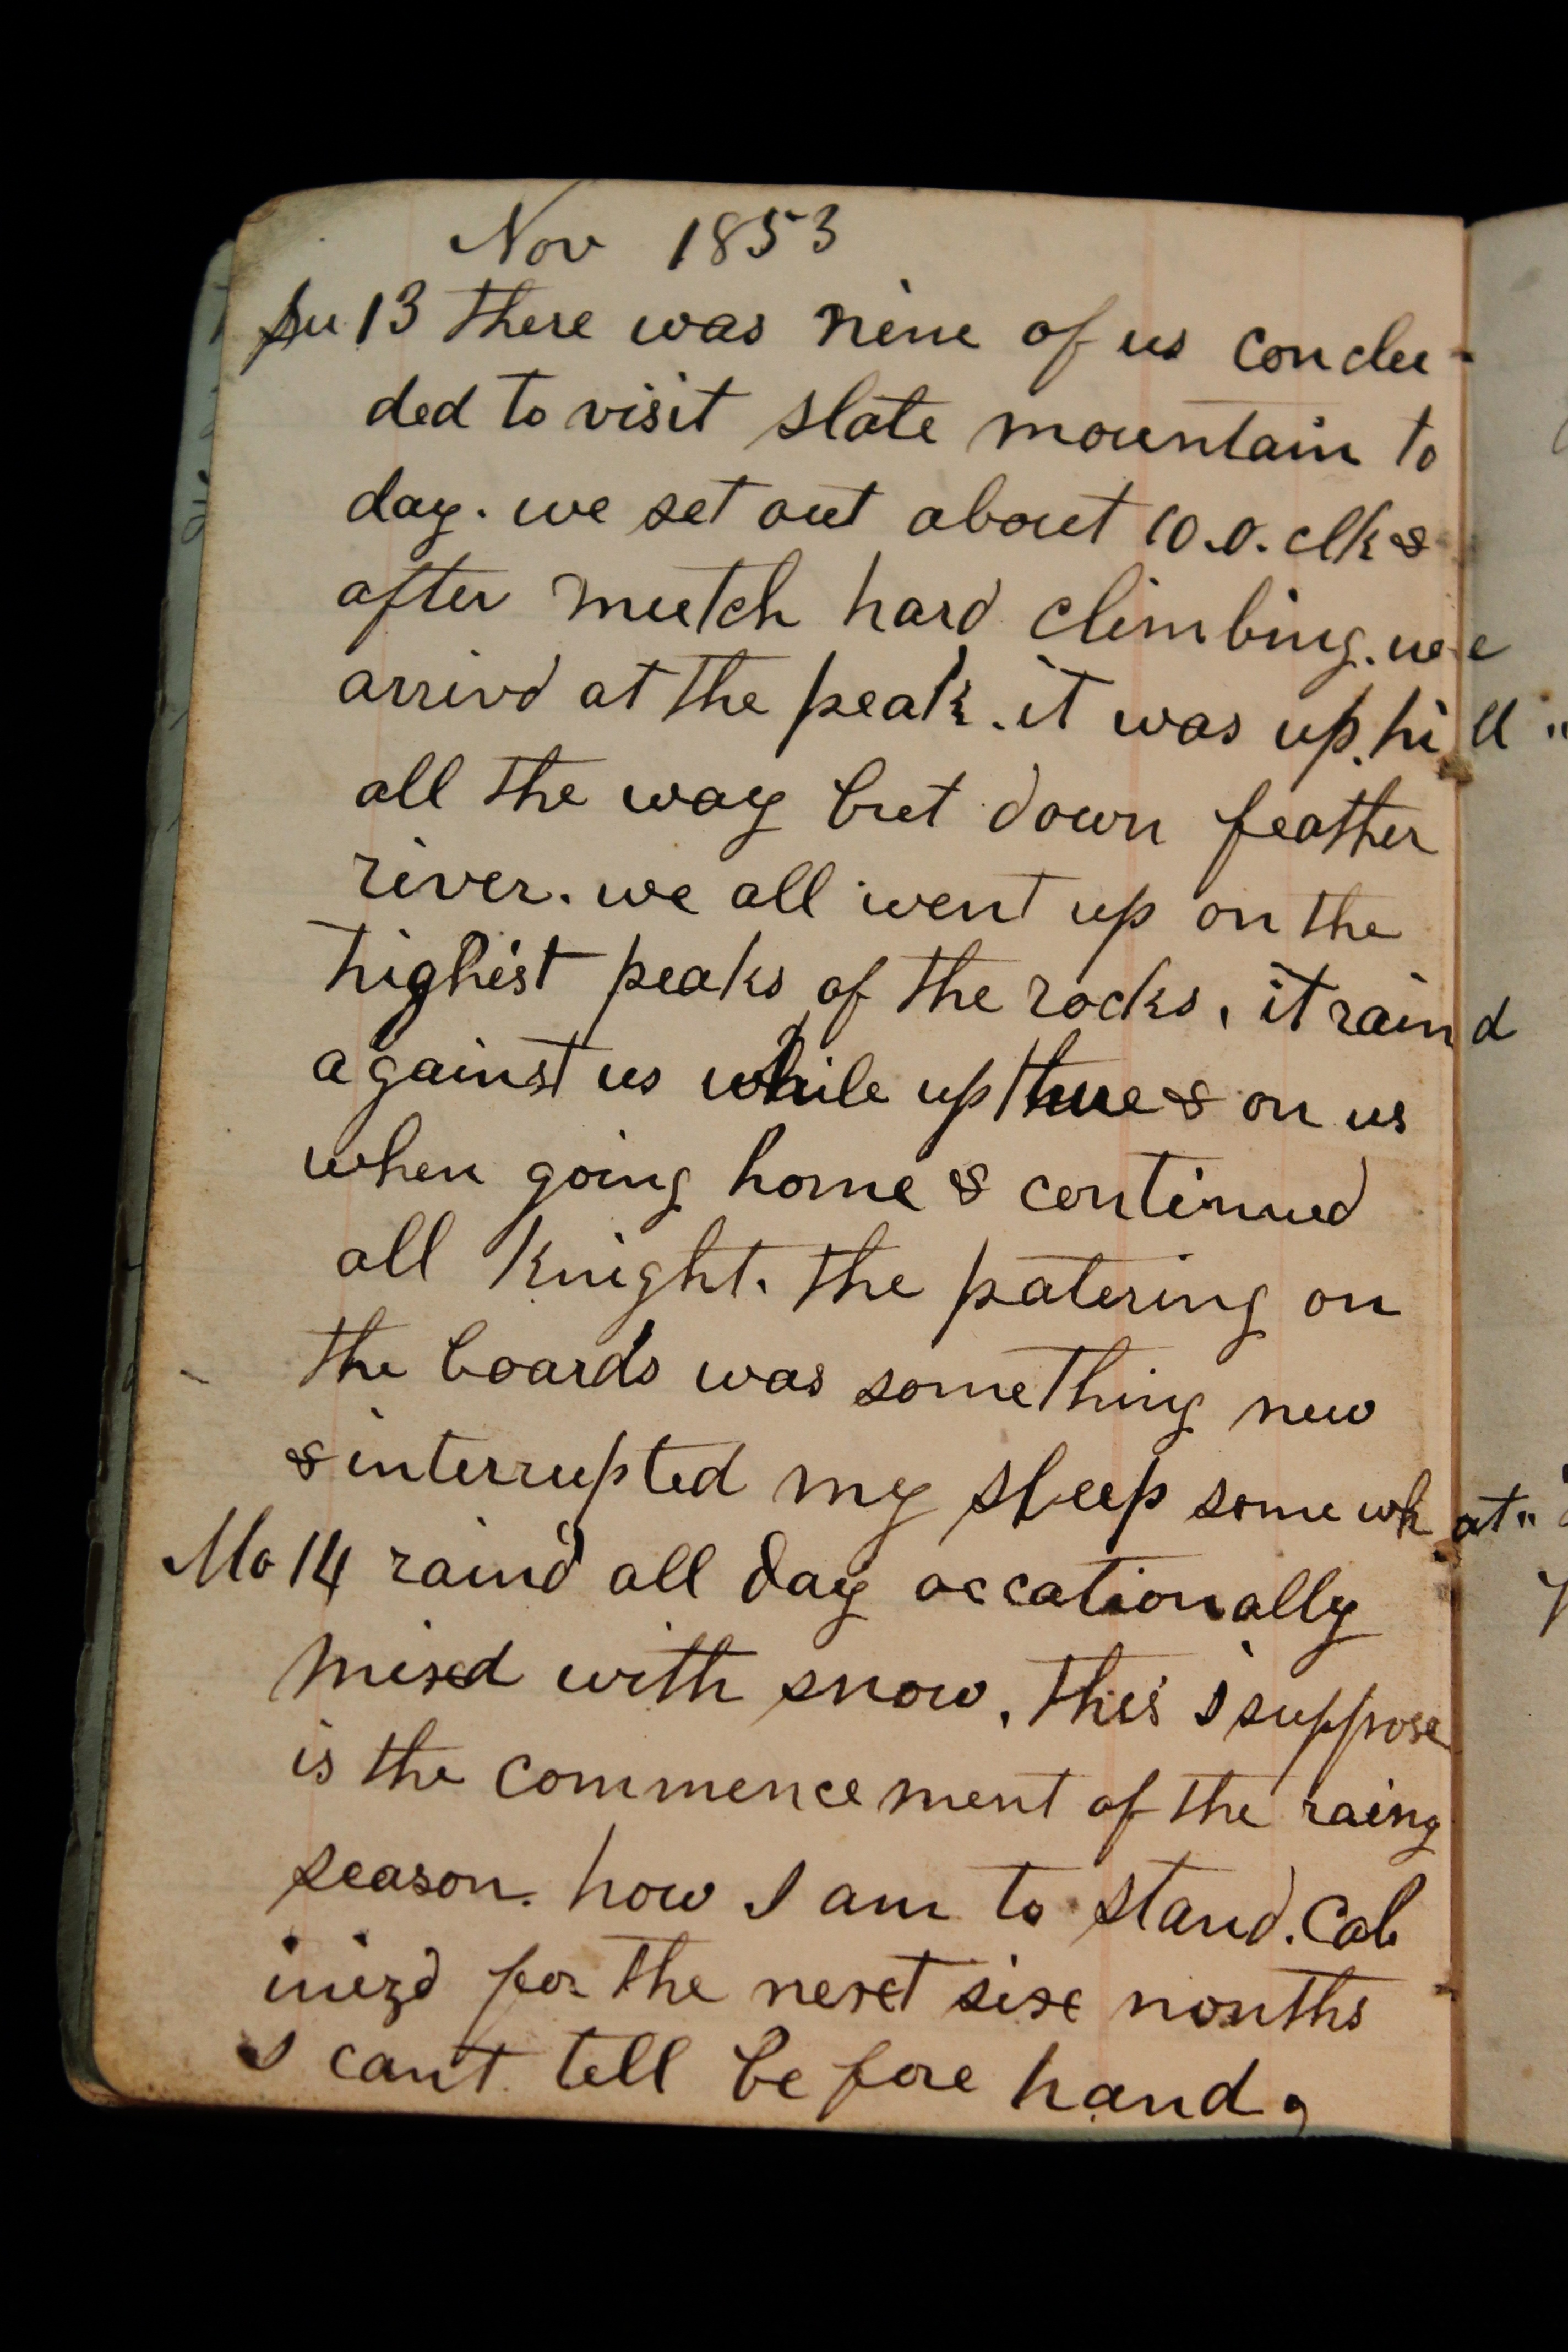 Nov 1853
Su 13 there was nine of us conclu-
ded to visit slate mountain to
day. we set out about 10.o.clk &
after mutch hard climbing. we
arrivd at the peak. it was up hill "
all the way but down feather
river. we all went up on the
highest peaks of the rocks, it raind
against us while up there & on us
when going home & continued
all knight. the patering on
the boards was something new
& interrupted my sleep some what "
Mo 14 rain'd all day occationally
mixd with snow, this I suppose
is the commencement of the rainy
season. how I am to stand. Cab
iniz'd for the next six months
I cant tell before hand,